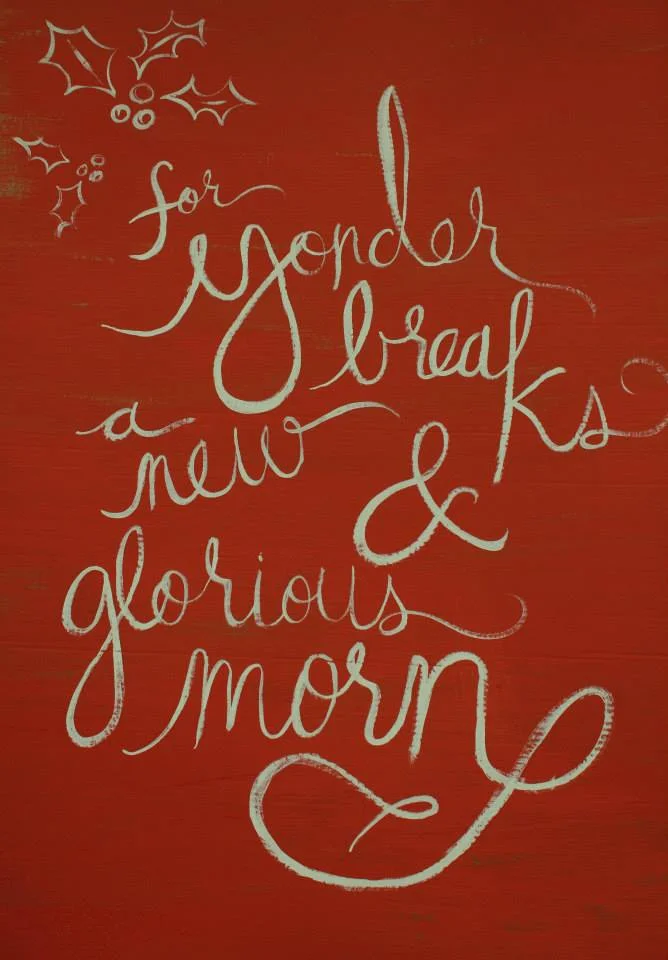 for
yonder
breaks
a
new &
glorious
morn